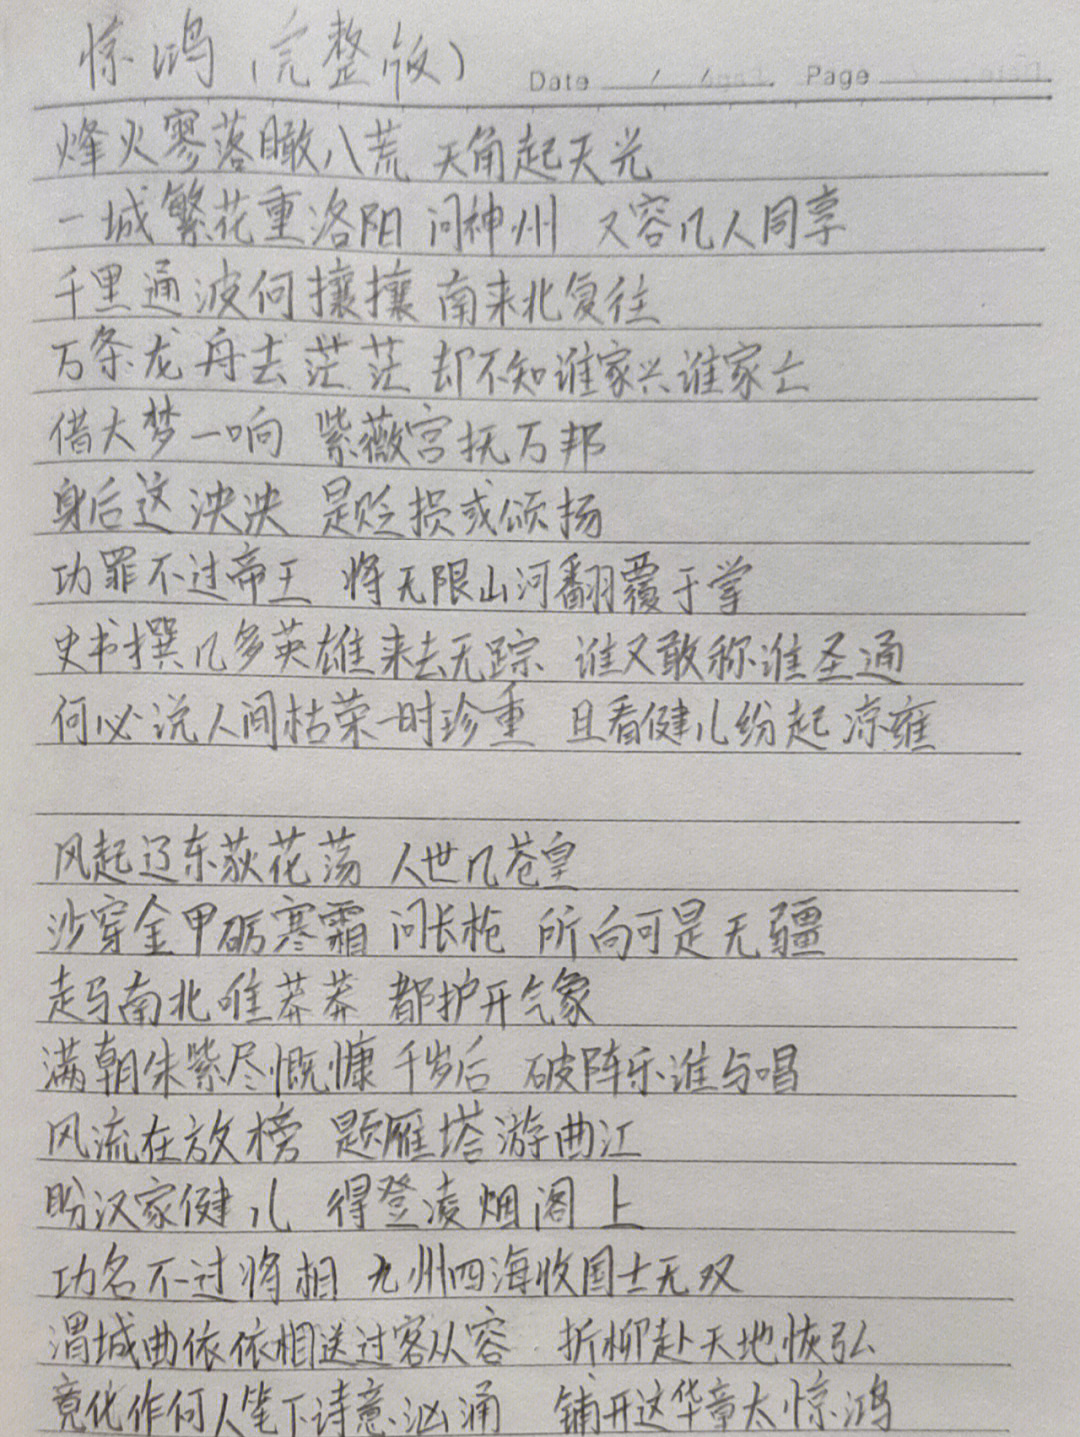 惊鸿（完整版）
Date / / Page
烽火寥落瞰八荒 天角起天光
一城繁花重洛阳 问神州 又容几人同享
千里通波何攘攘 南来北复往
万条龙舟去茫茫 却不知谁家兴谁家亡
借大梦一响 紫薇宫抚万邦
身后这泱泱 是贬损或颂扬
功罪不过帝王 将无限山河翻覆于掌
史书撰几多英雄来去无踪 谁又敢称谁圣通
何必说人间枯荣一时珍重 且看健儿纷起凉雍
风起辽东荻花荡 人世几苍皇
沙穿金甲砺寒霜 问长枪 所向可是无疆
走马南北唯莽莽 都护开气象
满朝朱紫尽慨慷 千岁后 破阵乐谁与唱
风流在放榜 题雁塔游曲江
盼汉家健儿 得登凌烟阁上
功名不过将相 九州四海收国士无双
渭城曲依依相送过客从容 折柳赴天地恢弘
竟化作何人笔下诗意汹涌 铺开这华章太惊鸿